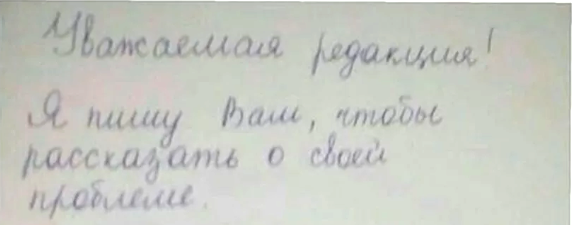 Уважаемая редакция!
Я пишу Вам, чтобы
рассказать о своей
проблеме.